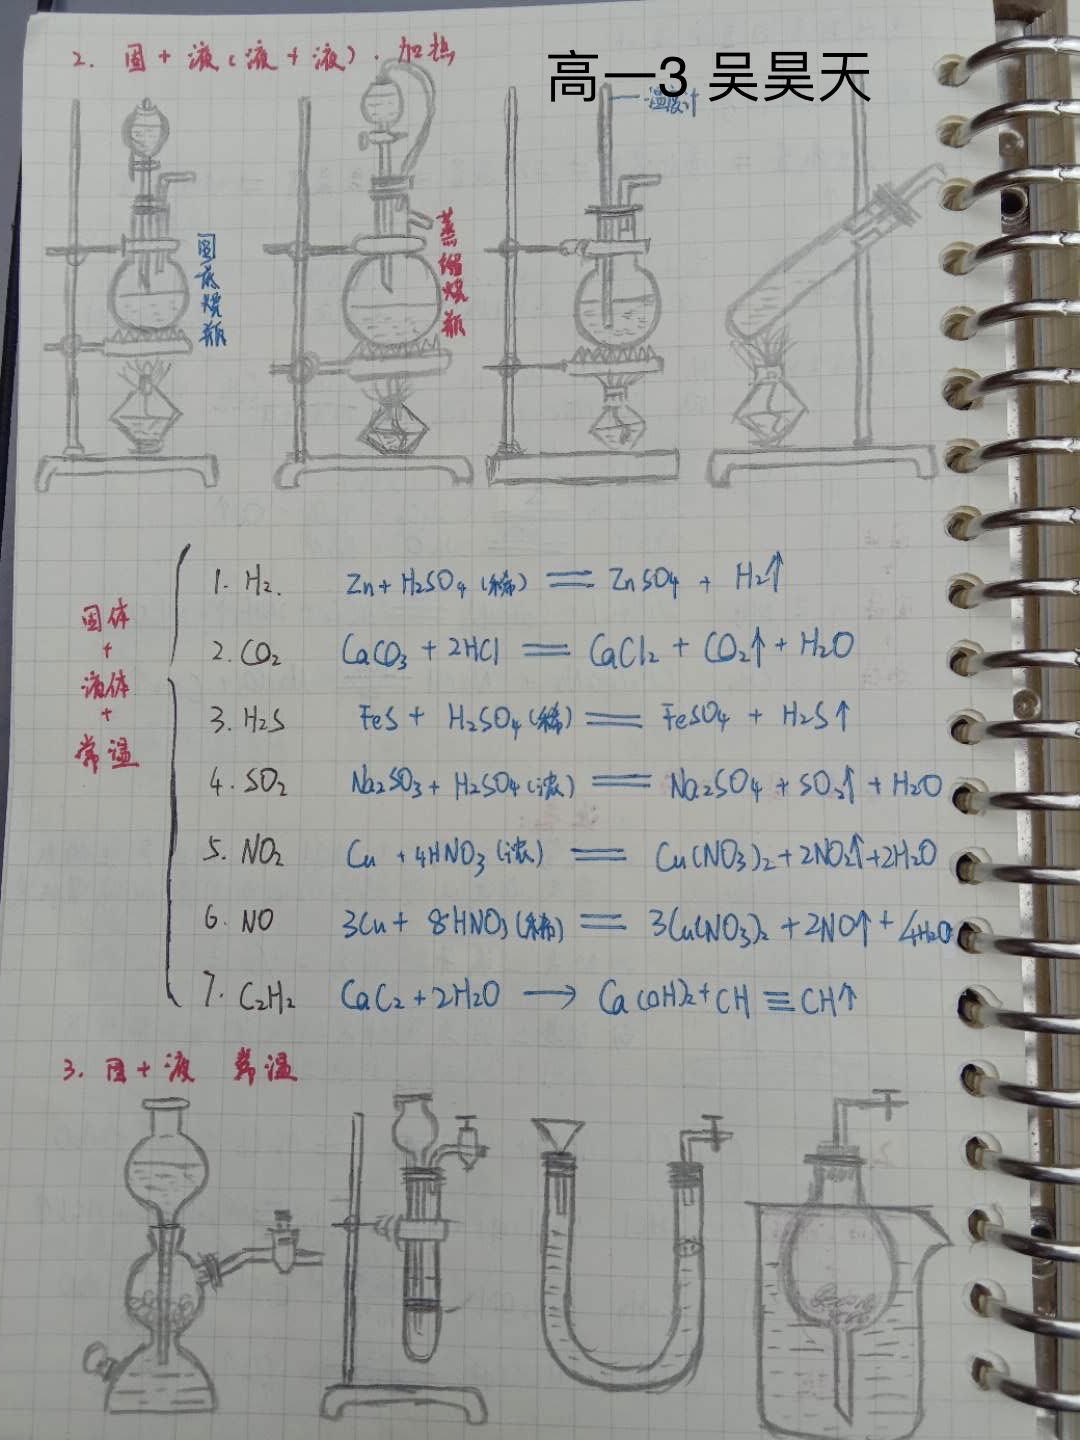 2. 固+液(液+液).加热
高一3 吴昊天
温度计
圆底烧瓶
蒸馏烧瓶
固体
+
液体
+
常温
1. H₂. Zn + H₂SO₄ (稀) == ZnSO₄ + H₂↑
2. CO₂ CaCO₃ + 2HCl == CaCl₂ + CO₂↑ + H₂O
3. H₂S FeS + H₂SO₄ (稀) == FeSO₄ + H₂S↑
4. SO₂ Na₂SO₃ + H₂SO₄ (浓) == Na₂SO₄ + SO₂↑ + H₂O
5. NO₂ Cu + 4HNO₃ (浓) == Cu(NO₃)₂ + 2NO₂↑ + 2H₂O
6. NO 3Cu + 8HNO₃ (稀) == 3Cu(NO₃)₂ + 2NO↑ + 4H₂O
7. C₂H₂ CaC₂ + 2H₂O → Ca(OH)₂ + CH≡CH↑
3. 固+液 常温